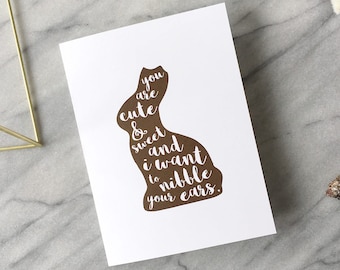 you
are
cute
&
sweet
and
i want
to
nibble
your ears.